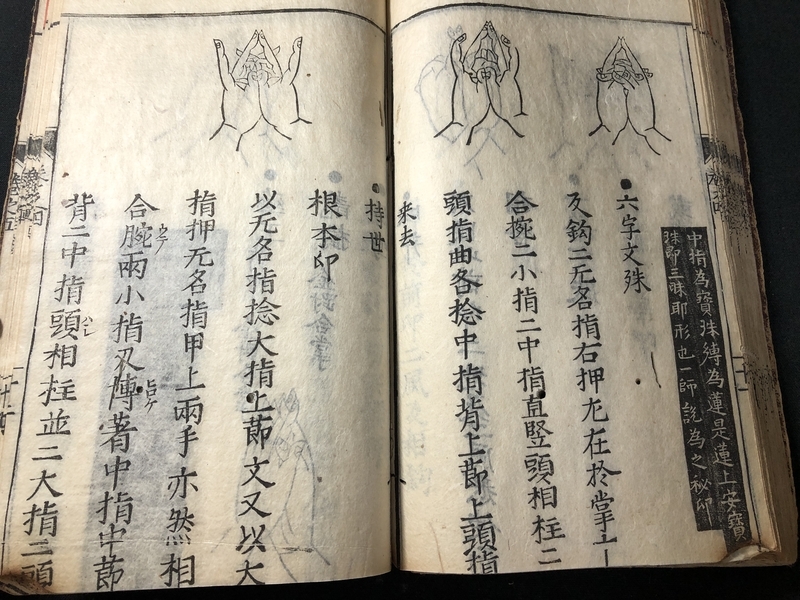 中指為寶珠縛為蓮是蓮上安寶
珠即三昧耶形也一師說為之秘印
六字文殊
叉鈎二无名指右押左在於掌
合捥二小指二中指直竪頭相柱二
頭指曲各捻中指背上莭上頭指
来去
持世
根本印
以无名指捻大指上莭文又以大
指押无名指甲上兩手亦然相
合腕兩小指叉博著中指中莭
背二中指頭相柱並二大指二頭